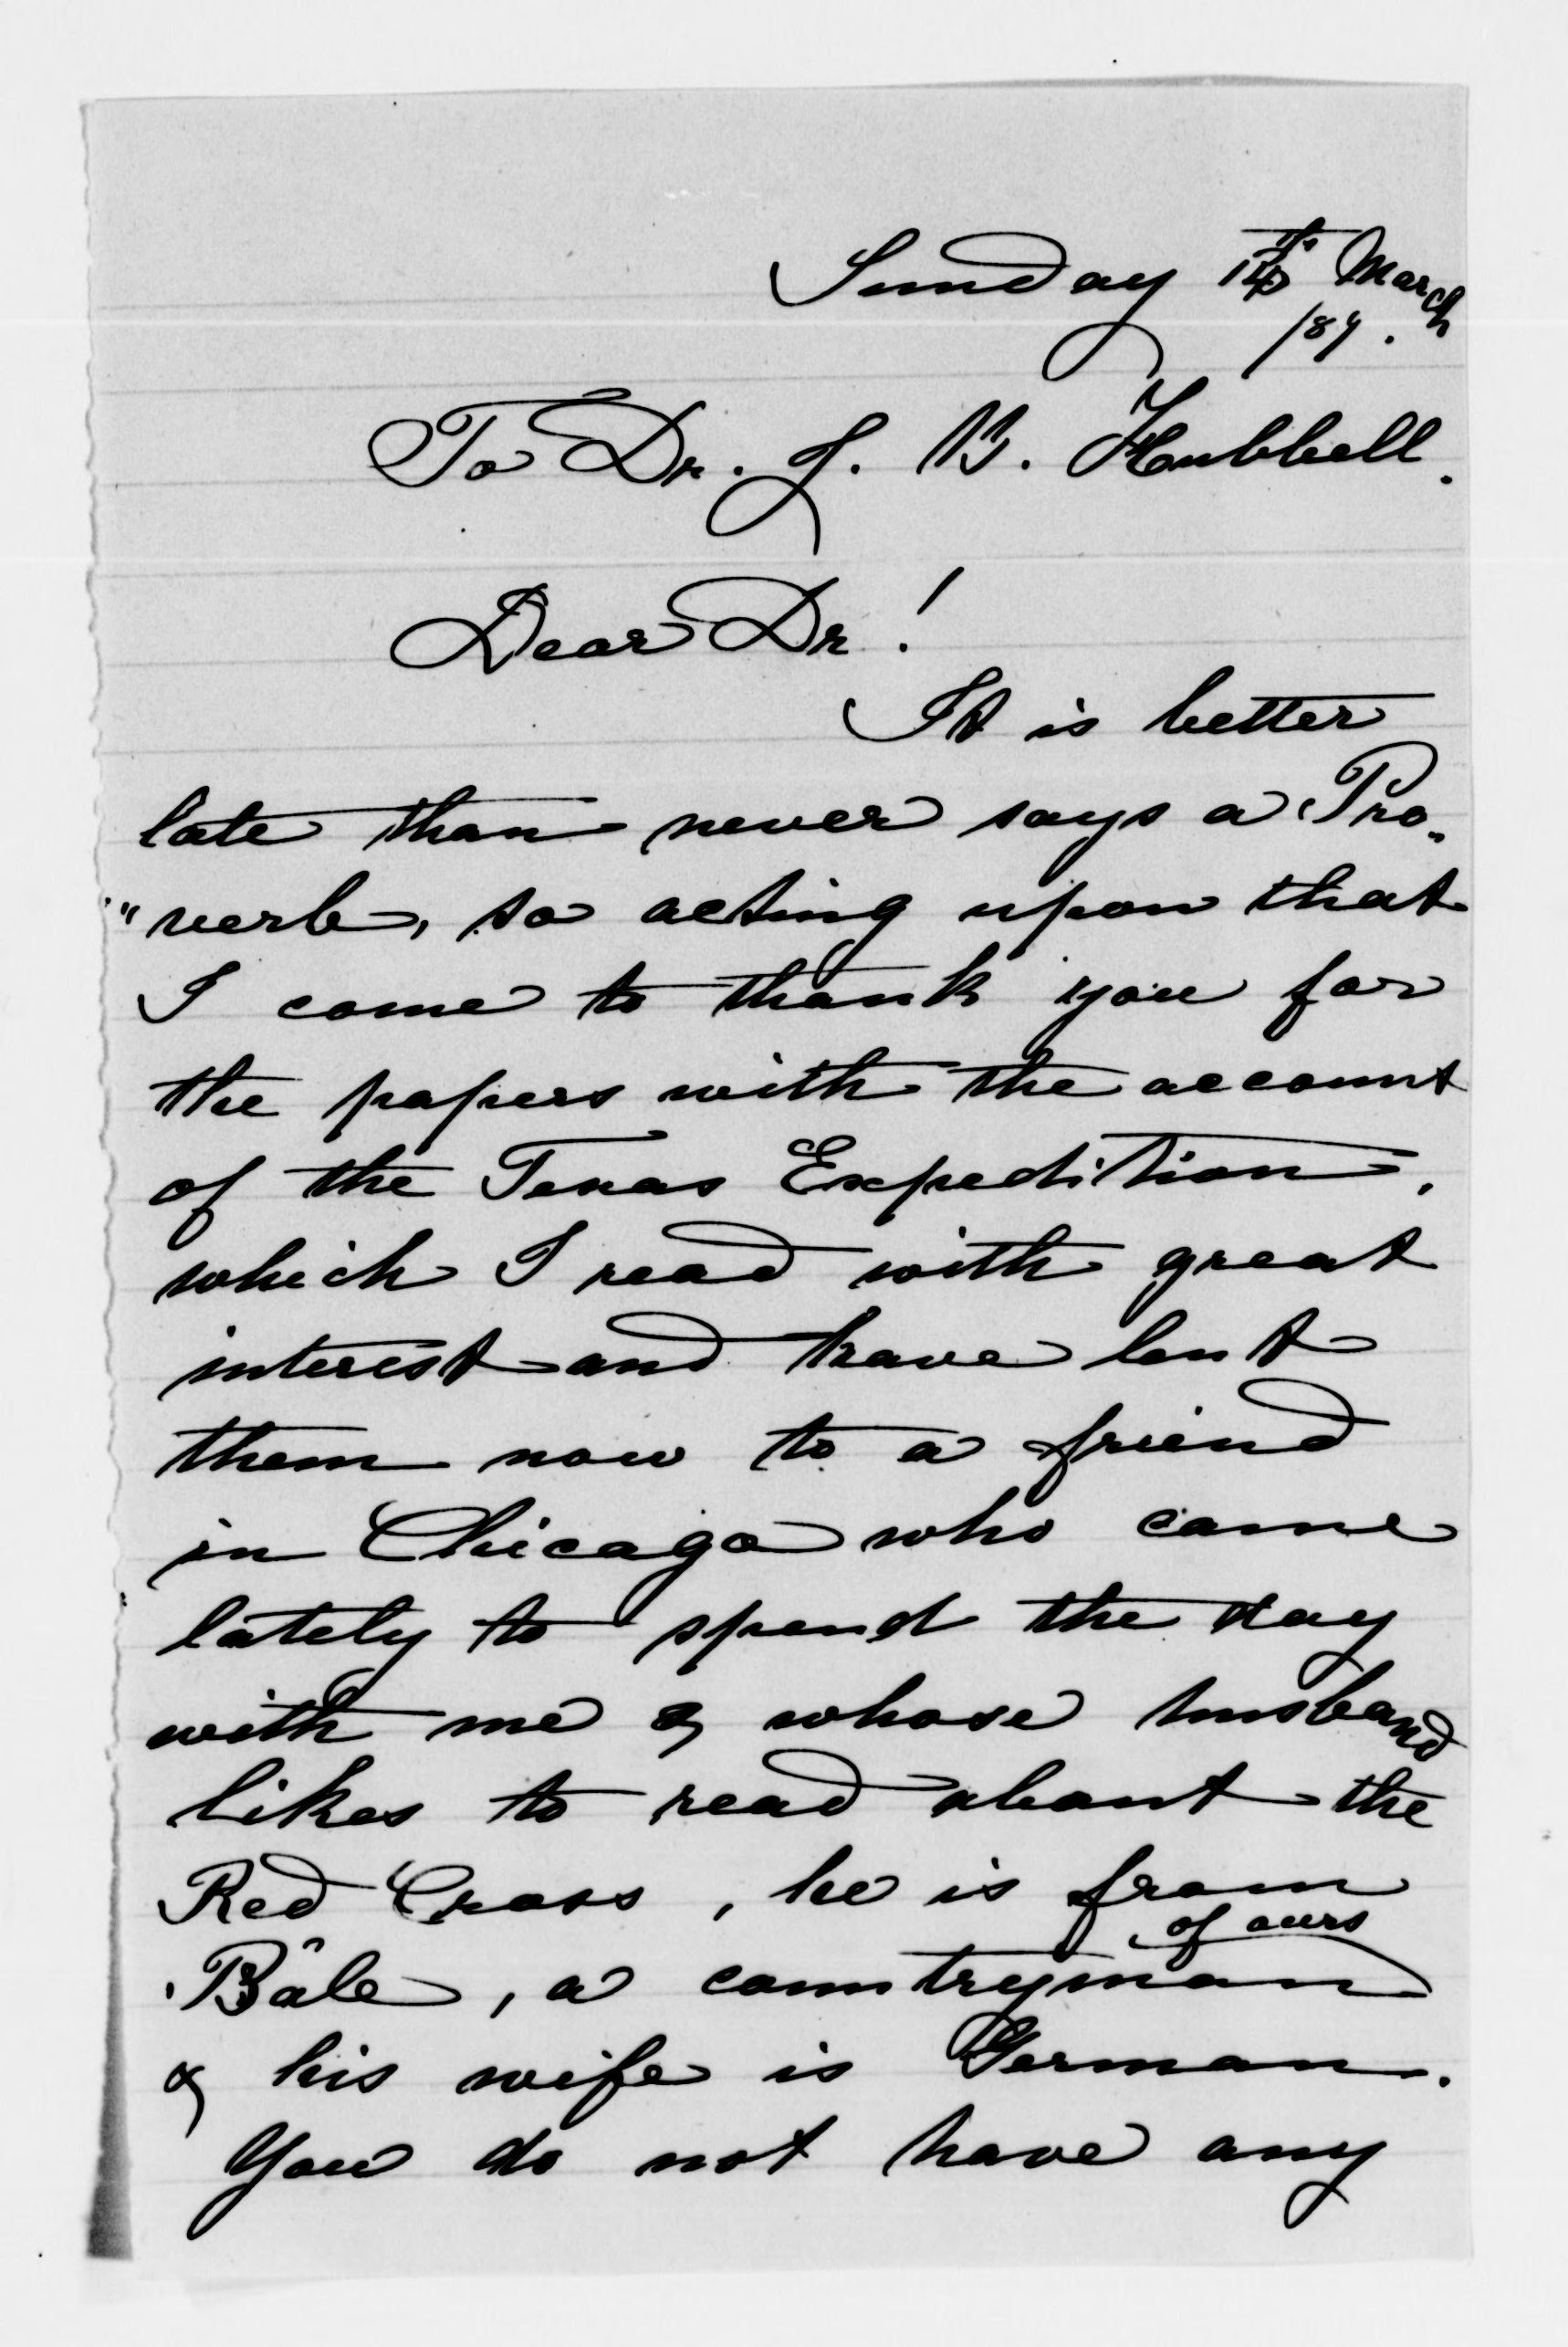 Sunday 14th March
/87.
To Dr. J. B. Hubbell.
Dear Dr!
It is better
late than never says a Pro„
"verb, so acting upon that
I come to thank you for
the papers with the account
of the Texas Expedition,
which I read with great
interest and have lent
them now to a friend
in Chicago who came
lately to spend the day
with me & whose husband
likes to read about the
Red Cross, he is from
of ours
Bâle, a countryman
& his wife is German.
You do not have any